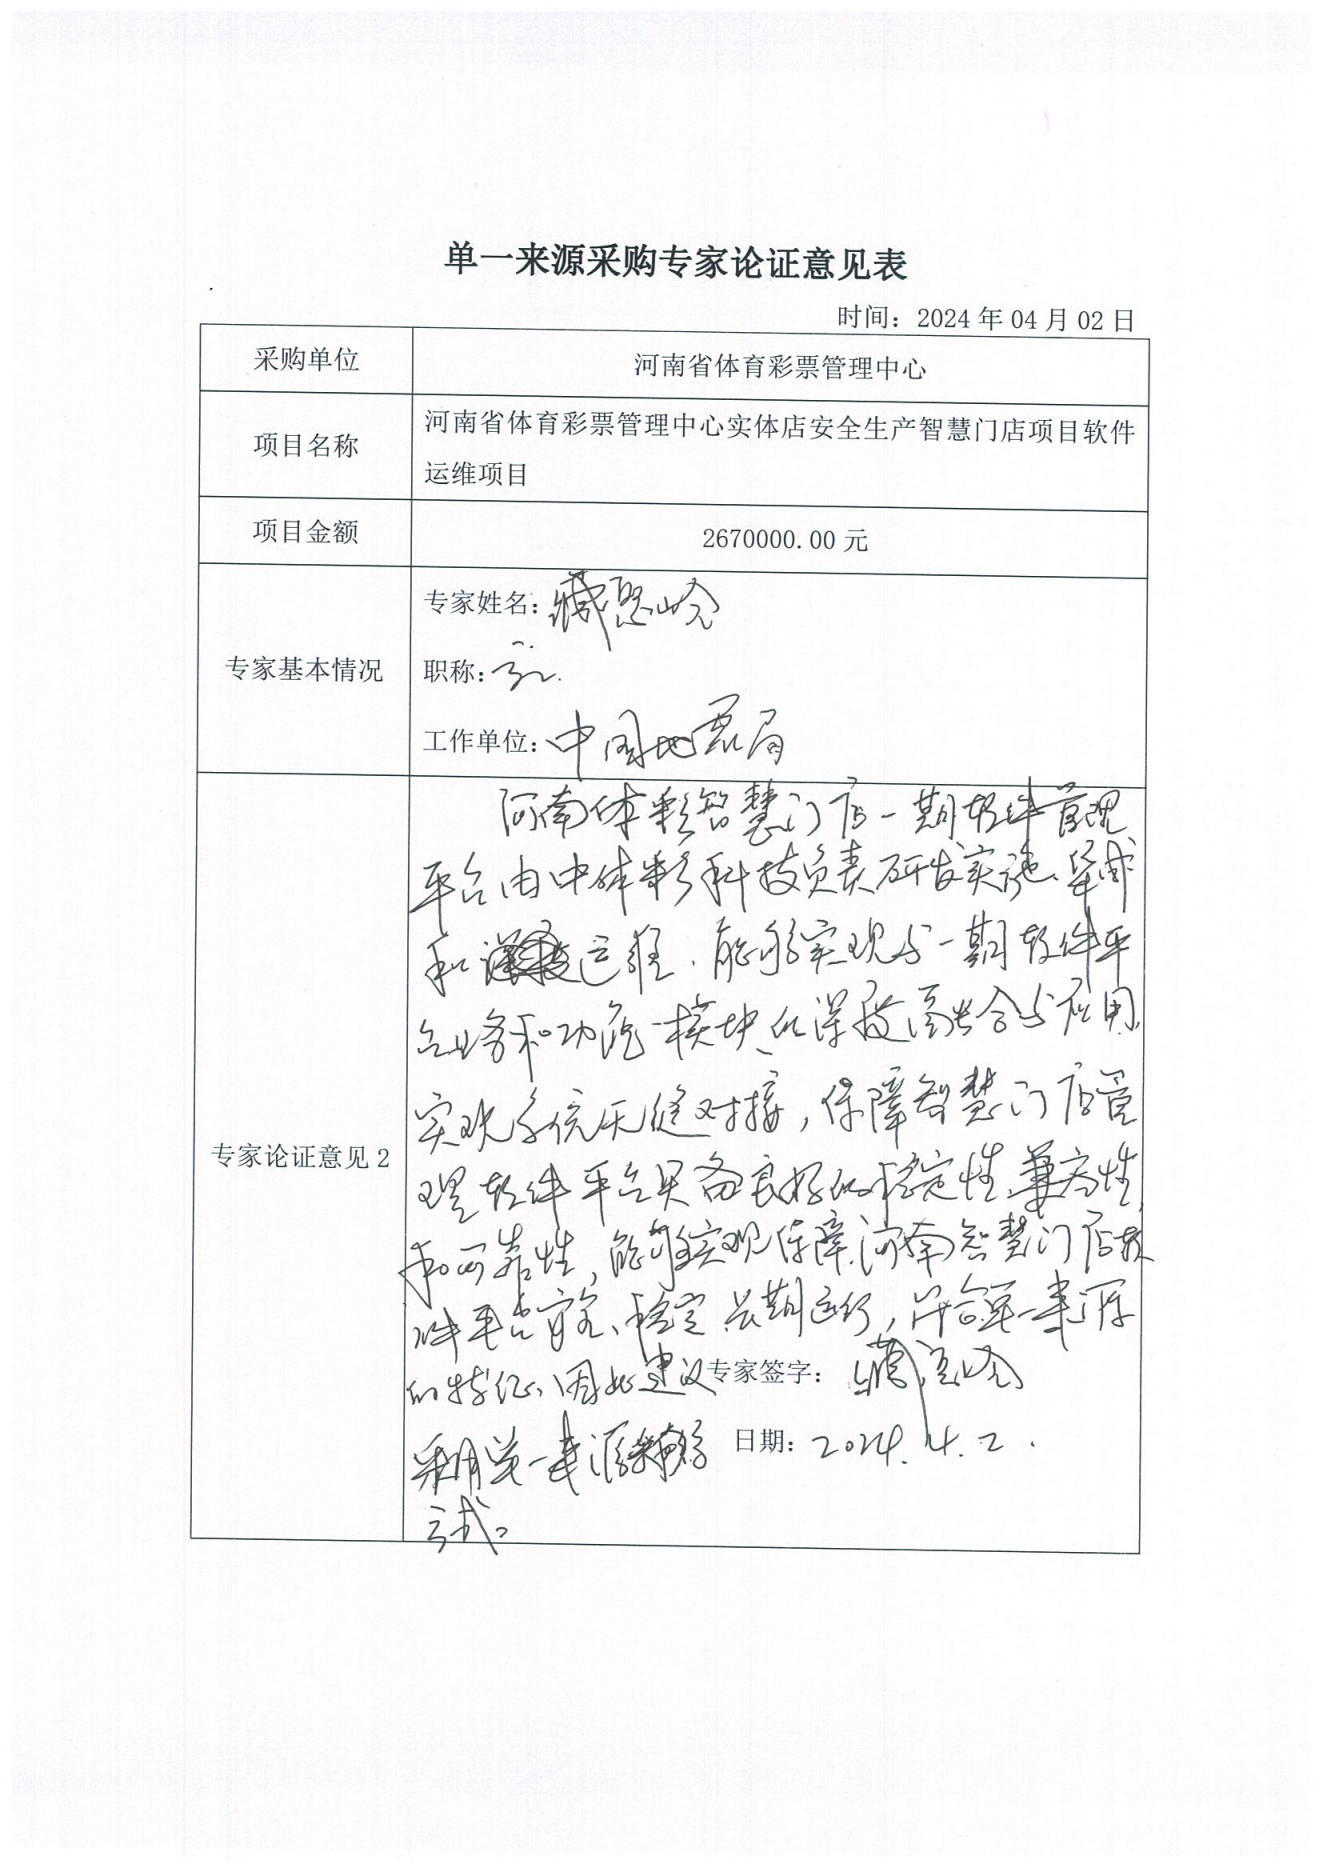 单一来源采购专家论证意见表
时间：2024 年 04 月 02 日
采购单位
河南省体育彩票管理中心
项目名称
河南省体育彩票管理中心实体店安全生产智慧门店项目软件
运维项目
项目金额
2670000.00 元
专家基本情况
专家姓名：臧
职称：高工
工作单位：中国地震局
专家论证意见 2
河南体彩智慧门店一期软件管理
平台由中体彩科技负责研发实施、集成
和运维，能够实现与一期软件平
台业务和功能模块的深度融合与应用，
实现系统无缝对接，保障智慧门店管
理软件平台具备良好的稳定性、兼容性，
和可靠性，能够实现保障河南智慧门店软
件平台安全、稳定、长期运行，符合单一来源
的特征，因此建议
专家签字：
采用单一来源采购
日期：2024.4.2.
方式。